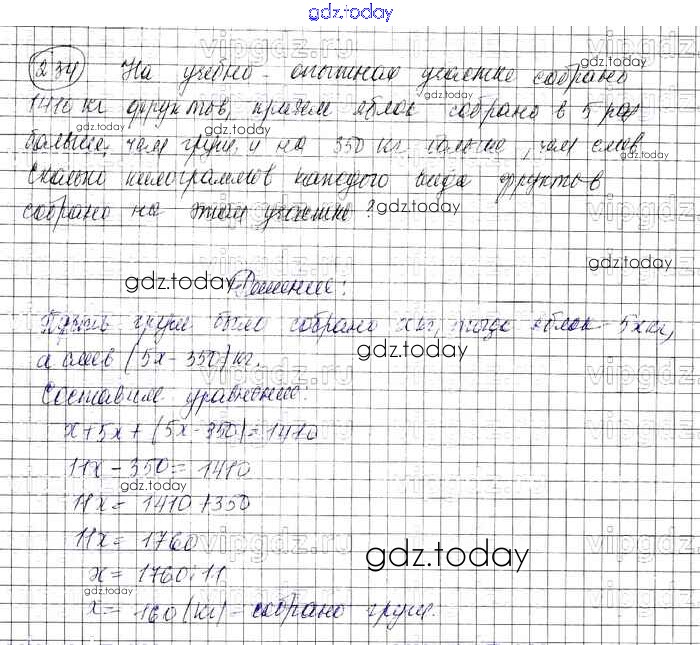 gdz.today
234 На учебно-опытном участке собрано
1410 кг фруктов, причем яблок собрано в 5 раз
больше, чем груш и на 350 кг больше, чем слив
Сколько килограммов каждого вида фруктов
собрано на этом участке?
Решение:
Пусть груш было собрано x кг, тогда яблок - 5x кг,
а слив (5x - 350) кг.
Составим уравнение:
x + 5x + (5x - 350) = 1410
11x - 350 = 1410
11x = 1410 + 350
11x = 1760
x = 1760 : 11
x = 160 (кг) - собрано груш.
gdz.today
vipgdz.ru